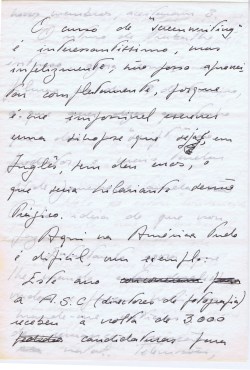 O curso de "screenwriting"
é interessantíssimo, mas
infelizmente, não posso aprovei
tar completamente, porque
é-me impossível escrever
uma sinopse que seja, em
Inglês, sem dar erros, o
que seria hilariante senão
trágico.
Aqui na América tudo
é difícil, um exemplo:
Este ano
a A.S.C (directores de fotografia)
recebeu à volta de 3.000
candidaturas para